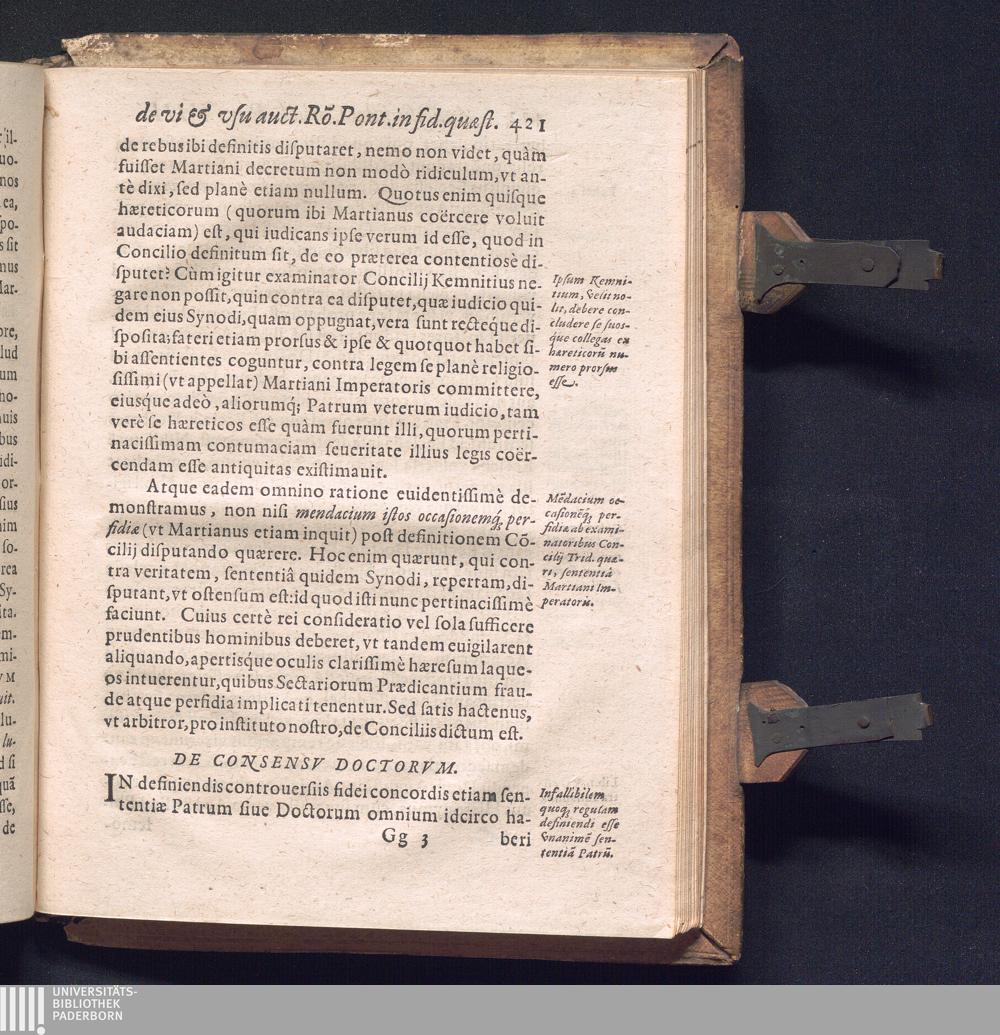 de vi & vſu auct. Rõ. Pont. in fid. quæſt. 421
de rebus ibi definitis diſputaret, nemo non videt, quàm
fuiſſet Martiani decretum non modò ridiculum, vt an-
tè dixi, ſed planè etiam nullum. Quotus enim quiſque
hæreticorum (quorum ibi Martianus coërcere voluit
audaciam) eſt, qui iudicans ipſe verum id eſſe, quod in
Concilio definitum ſit, de eo præterea contentiosè di-
ſputet? Cùm igitur examinator Concilij Kemnitius ne-
gare non poſſit, quin contra ea diſputet, quæ iudicio qui-
dem eius Synodi, quam oppugnat, vera ſunt recteq́ue di-
ſpoſita; fateri etiam prorſus & ipſe & quotquot habet ſi-
bi aſſentientes coguntur, contra legem ſe planè religio-
ſiſſimi (vt appellat) Martiani Imperatoris committere,
eiusq́ue adeò, aliorumq́; Patrum veterum iudicio, tam
verè ſe hæreticos eſſe quàm fuerunt illi, quorum perti-
naciſſimam contumaciam ſeueritate illius legis coër-
cendam eſſe antiquitas exiſtimauit.
Ipſum Kemni-
tium, velit no-
lit, debere con-
cludere ſe ſuos-
que collegas ex
hæreticorũ nu-
mero prorſus
eſſe.
Atque eadem omnino ratione euidentiſſimè de-
monſtramus, non niſi mendacium iſtos occaſionemq́; per-
fidiæ (vt Martianus etiam inquit) poſt definitionem Cõ-
cilij diſputando quærere. Hoc enim quærunt, qui con-
tra veritatem, ſententiâ quidem Synodi, repertam, di-
ſputant, vt oſtenſum eſt: id quod iſti nunc pertinaciſſimè
faciunt. Cuius certè rei conſideratio vel ſola ſufficere
prudentibus hominibus deberet, vt tandem euigilarent
aliquando, apertisq́ue oculis clariſſimè hæreſum laque-
os intuerentur, quibus Sectariorum Prædicantium frau-
de atque perfidia implicati tenentur. Sed ſatis hactenus,
vt arbitror, pro inſtituto noſtro, de Conciliis dictum eſt.
Mẽdacium oc-
caſionẽq́; per-
fidiæ ab exami-
natoribus Con-
cilij Trid. quæ-
ri, ſententiâ
Martiani Im-
peratoris.
DE CONSENSV DOCTORVM.
IN definiendis controuerſiis fidei concordis etiam ſen-
tentiæ Patrum ſiue Doctorum omnium idcirco ha-
Infallibilem
quoq; regulam
definiendi eſſe
vnanimẽ ſen-
tentiã Patrũ.
Gg 3 beri
UNIVERSITÄTS-
BIBLIOTHEK
PADERBORN